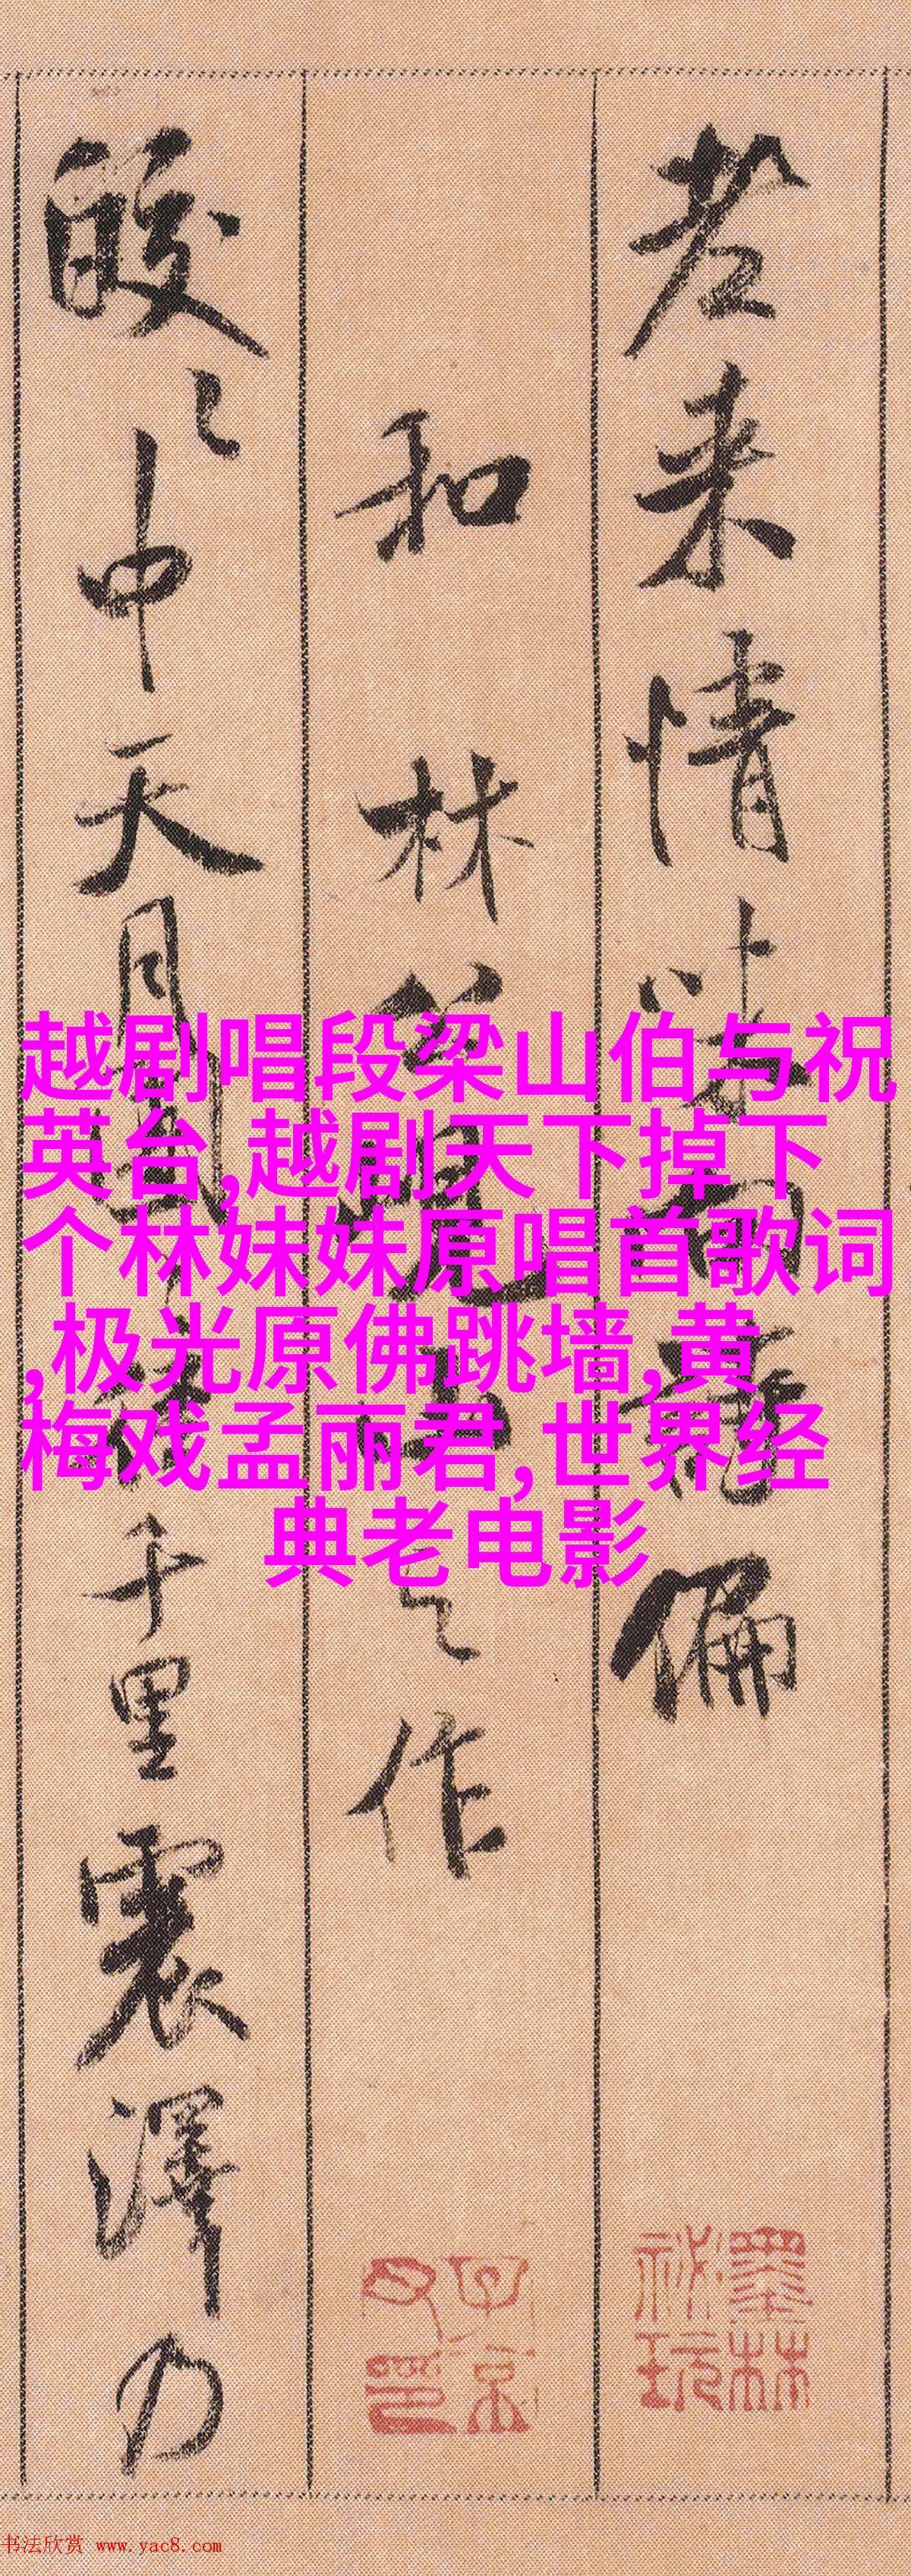 老来情味向偏
墨林秘玩
和林公峴山之作
子京父印
皎〻中天月千里震澤乃
越剧唱段梁山伯与祝
英台,越剧天下掉下
个林妹妹原唱首歌词
,极光原佛跳墙,黄
梅戏孟丽君,世界经
典老电影
书法欣赏 www.yac8.com